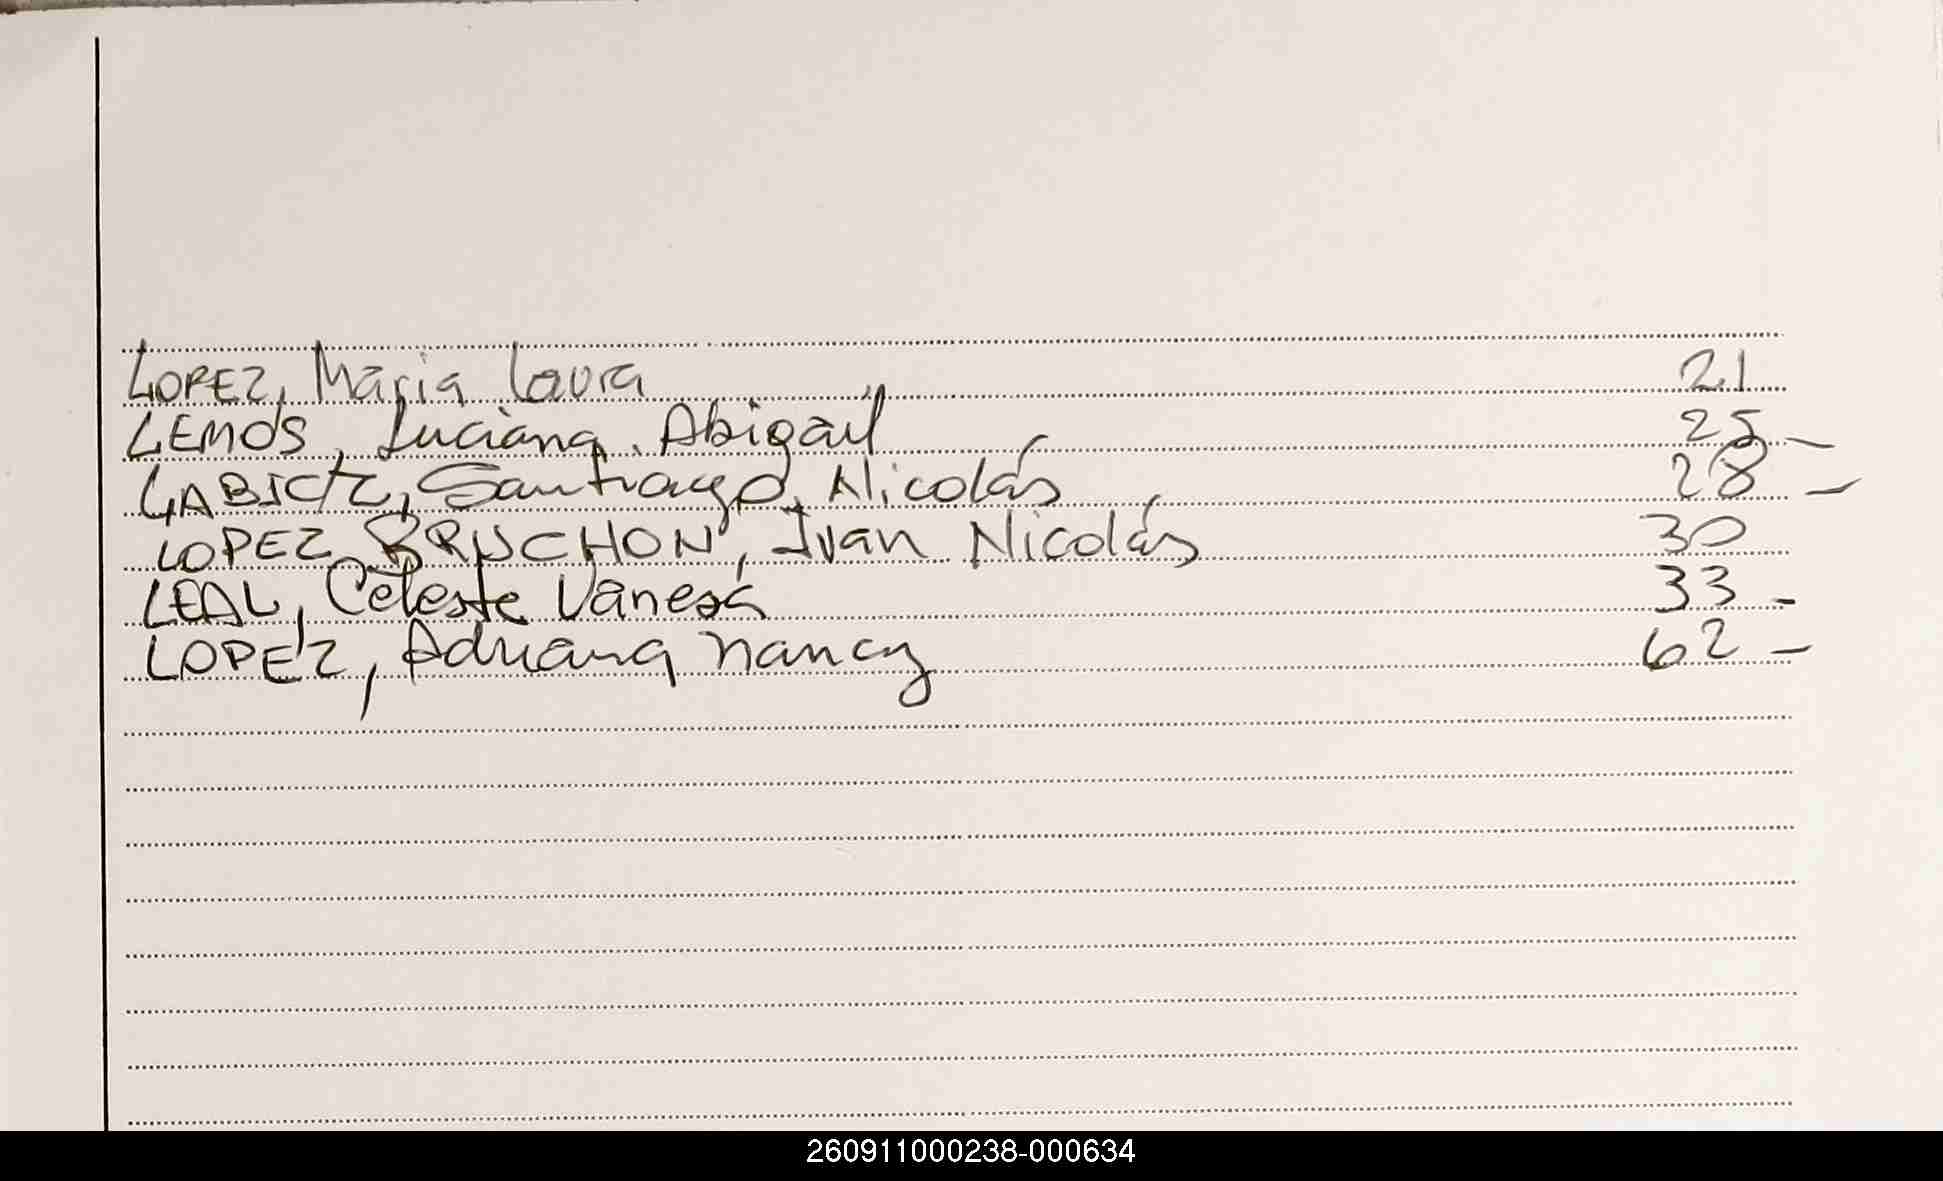 LOPEZ, Maria Laura 21
LEMOS, Luciana Abigail 25 -
Santiago Nicolás 28 -
LOPEZ BRUCHON, Ivan Nicolás 30
LEAL, Celeste Vanesa 33 -
LOPEZ, Adriana Nancy 62 -
260911000238-000634